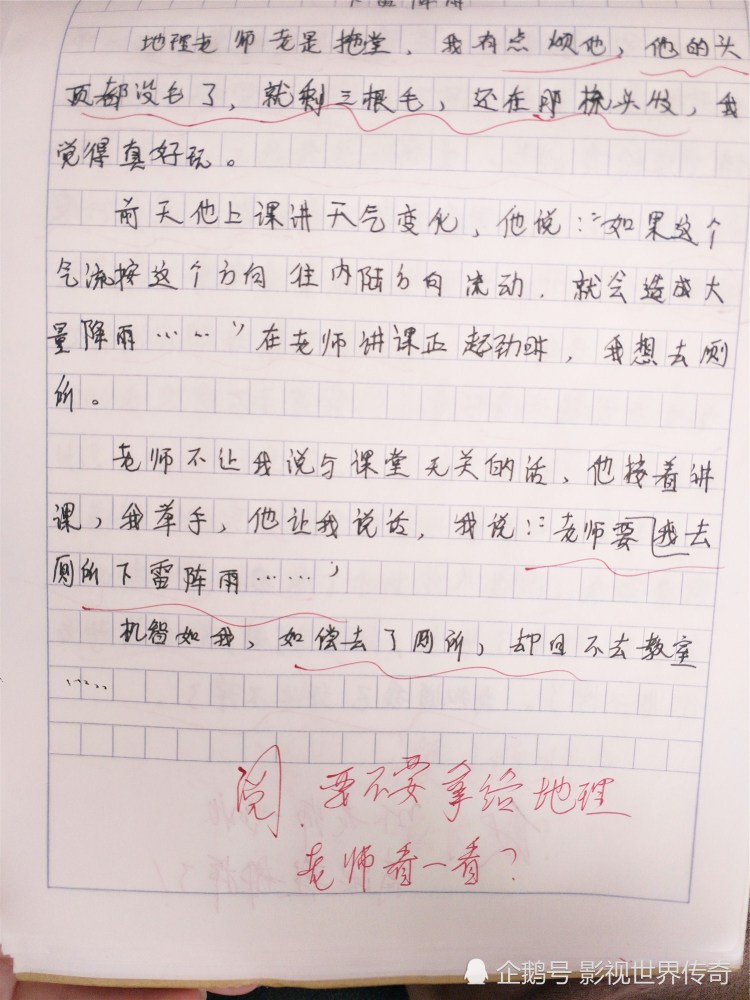 下雷阵雨
地理老师老是拖堂，我有点烦他，他的头
顶都没毛了，就剩三根毛，还在那梳头发，我
觉得真好玩。
前天他上课讲天气变化，他说：“如果这个
气流按这个方向往内陆方向流动．就会造成大
量降雨……”在老师讲课正起劲时，我想去厕
所。
老师不让我说与课堂无关的话，他接着讲
课，我举手，他让我说话，我说：“老师要我去
厕所下雷阵雨……”
机智如我，如偿去了厕所，却回不去教室
……
阅．要不要拿给地理
老师看一看？
企鹅号 影视世界传奇